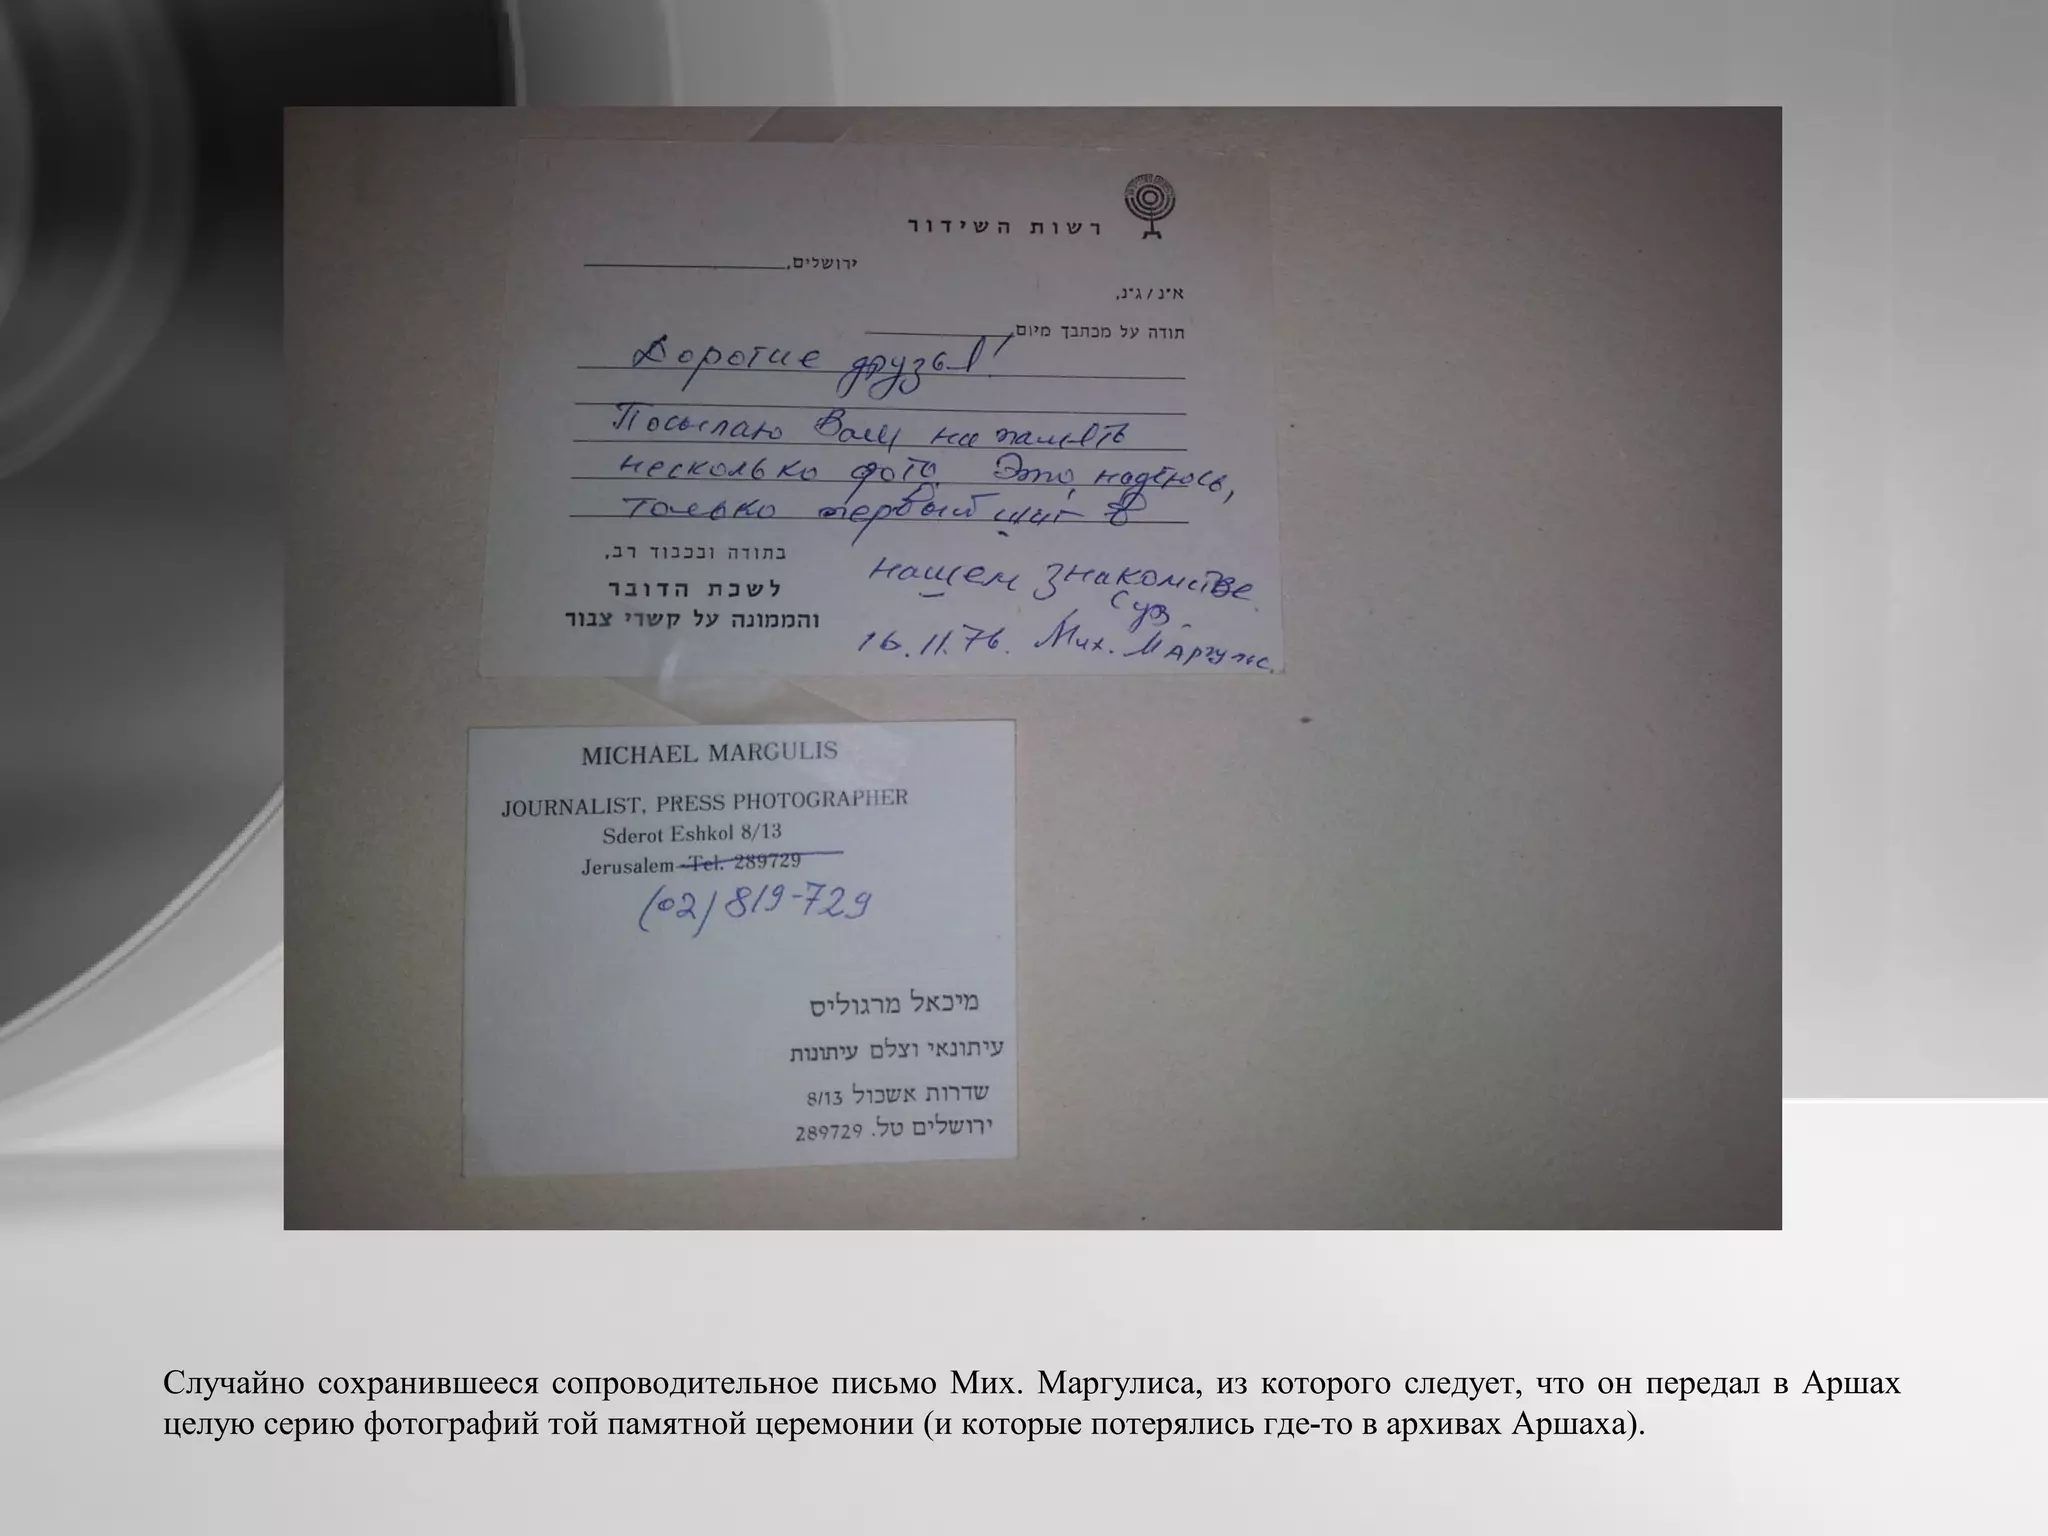 רשות השידור
ירושלים,
א״נ / ג״נ,
תודה על מכתבך מיום
Дорогие друзья!
Посылаю Вам на память
несколько фото. Это, надеюсь,
только первый шаг в
нашем знакомстве.
בתודה ובכבוד רב,
לשכת הדובר
והממונה על קשרי צבור
С ув.
16.11.76. Мих. Маргулис.
MICHAEL MARGULIS
JOURNALIST, PRESS PHOTOGRAPHER
Sderot Eshkol 8/13
Jerusalem Tel. 289729
(02) 819-729
מיכאל מרגוליס
עיתונאי וצלם עיתונות
שדרות אשכול 8/13
ירושלים טל. 289729
Случайно сохранившееся сопроводительное письмо Мих. Маргулиса, из которого следует, что он передал в Аршах
целую серию фотографий той памятной церемонии (и которые потерялись где-то в архивах Аршаха).